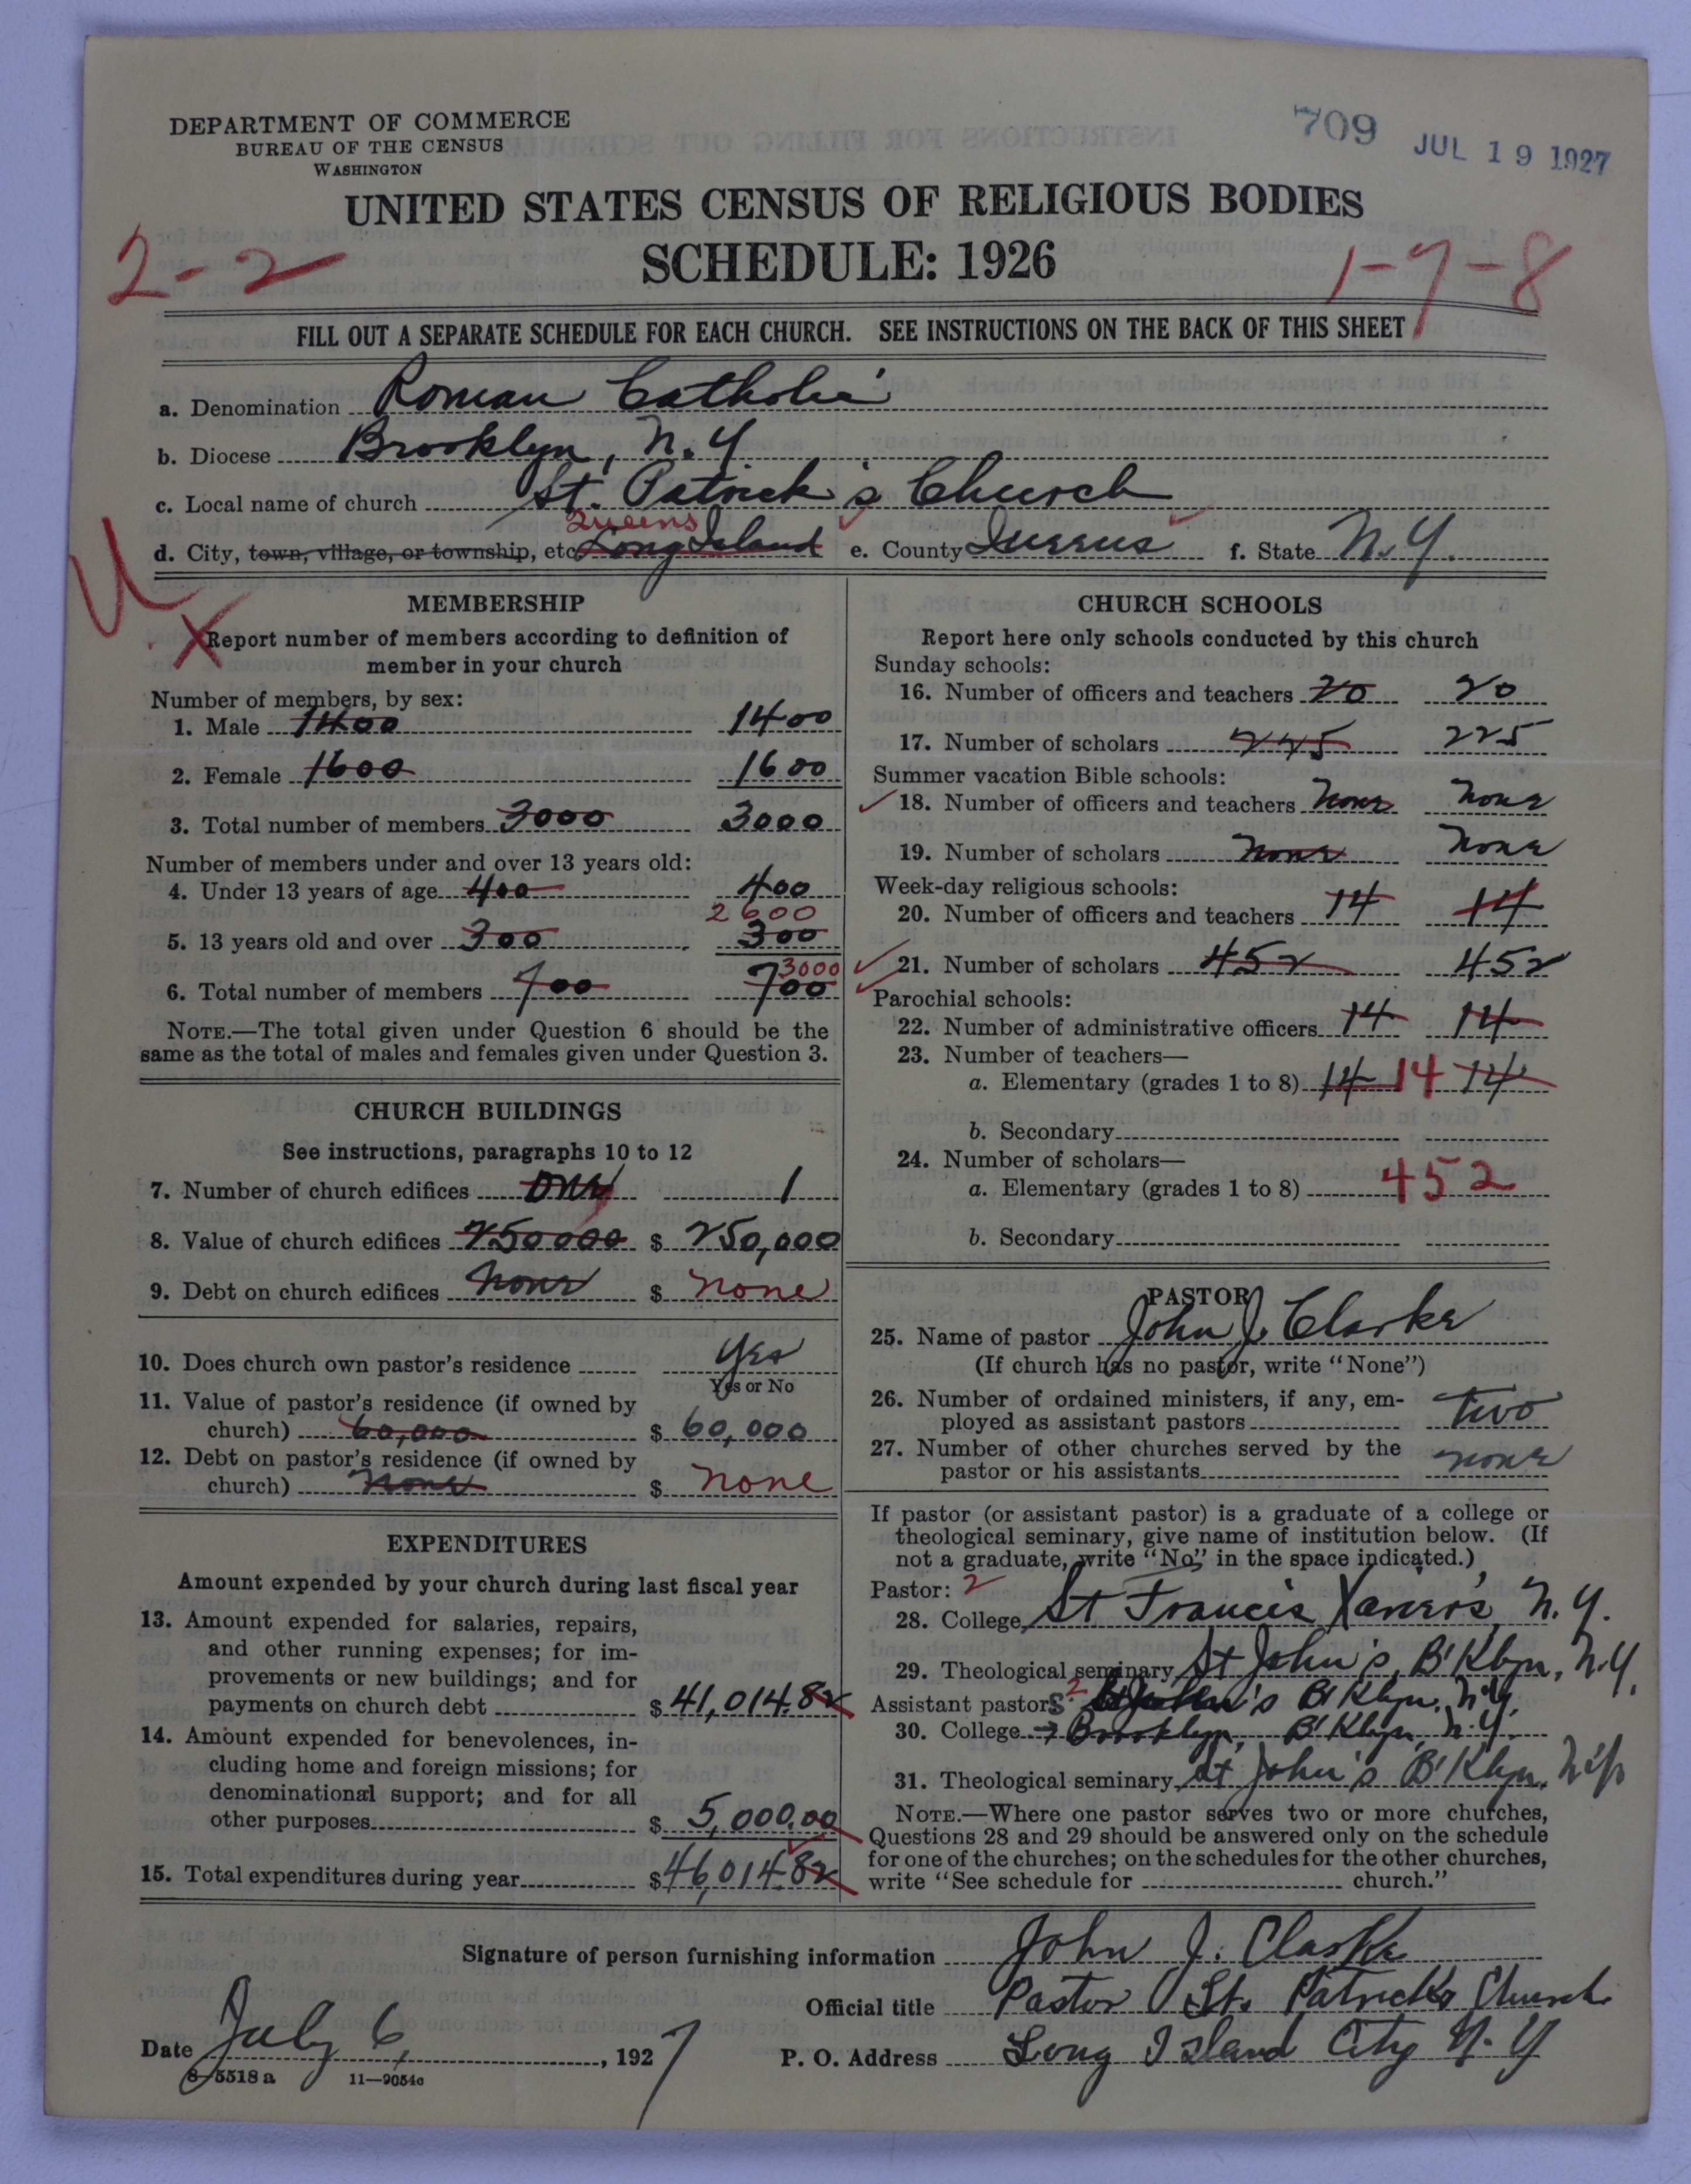 DEPARTMENT OF COMMERCE
BUREAU OF THE CENSUS
WASHINGTON
709 JUL 19 1927
UNITED STATES CENSUS OF RELIGIOUS BODIES
2-2 SCHEDULE: 1926 1-7-8
FILL OUT A SEPARATE SCHEDULE FOR EACH CHURCH. SEE INSTRUCTIONS ON THE BACK OF THIS SHEET
a. Denomination Roman Catholic
b. Diocese Brooklyn, N.Y
c. Local name of church St. Patrick's Church
Queens
d. City, town, village, or township, etc. Long Island e. County Queens f. State N.Y.
U
MEMBERSHIP
X Report number of members according to definition of
member in your church
Number of members, by sex:
1. Male 1400 1400
2. Female 1600 1600
3. Total number of members 3000 3000
Number of members under and over 13 years old:
4. Under 13 years of age 400 400
2600
5. 13 years old and over 300 300
3000
6. Total number of members 700 700
NOTE.—The total given under Question 6 should be the
same as the total of males and females given under Question 3.
CHURCH BUILDINGS
See instructions, paragraphs 10 to 12
7. Number of church edifices One 1
8. Value of church edifices 250000 $ 250,000
9. Debt on church edifices None $ none
10. Does church own pastor's residence Yes
Yes or No
11. Value of pastor's residence (if owned by
church) 60,000 $ 60,000
12. Debt on pastor's residence (if owned by
church) None $ none
EXPENDITURES
Amount expended by your church during last fiscal year
13. Amount expended for salaries, repairs,
and other running expenses; for im-
provements or new buildings; and for
payments on church debt $ 41,014.82
14. Amount expended for benevolences, in-
cluding home and foreign missions; for
denominational support; and for all
other purposes $ 5,000.00
15. Total expenditures during year $ 46,014.82
CHURCH SCHOOLS
Report here only schools conducted by this church
Sunday schools:
16. Number of officers and teachers 20 20
17. Number of scholars 225 225
Summer vacation Bible schools:
18. Number of officers and teachers None None
19. Number of scholars None None
Week-day religious schools:
20. Number of officers and teachers 14 14
21. Number of scholars 452 452
Parochial schools:
22. Number of administrative officers 14 14
23. Number of teachers—
a. Elementary (grades 1 to 8) 14 14 14
b. Secondary
24. Number of scholars—
a. Elementary (grades 1 to 8) 452
b. Secondary
PASTOR
25. Name of pastor John J. Clarke
(If church has no pastor, write "None")
26. Number of ordained ministers, if any, em-
ployed as assistant pastors two
27. Number of other churches served by the
pastor or his assistants none
If pastor (or assistant pastor) is a graduate of a college or
theological seminary, give name of institution below. (If
not a graduate, write "No" in the space indicated.)
Pastor: 2
28. College St Francis Xavier's, N.Y.
29. Theological seminary St John's, B'Klyn, N.Y.
Assistant pastors 2 St John's B'Klyn, N.Y.
30. College → Brooklyn, B'Klyn, N.Y.
31. Theological seminary St John's B'Klyn, N.Y.
NOTE.—Where one pastor serves two or more churches,
Questions 28 and 29 should be answered only on the schedule
for one of the churches; on the schedules for the other churches,
write "See schedule for church."
Signature of person furnishing information John J. Clarke
Official title Pastor St. Patricks Church
Date July 6, 1927 P. O. Address Long Island City N.Y
8-5518 a 11—9054c